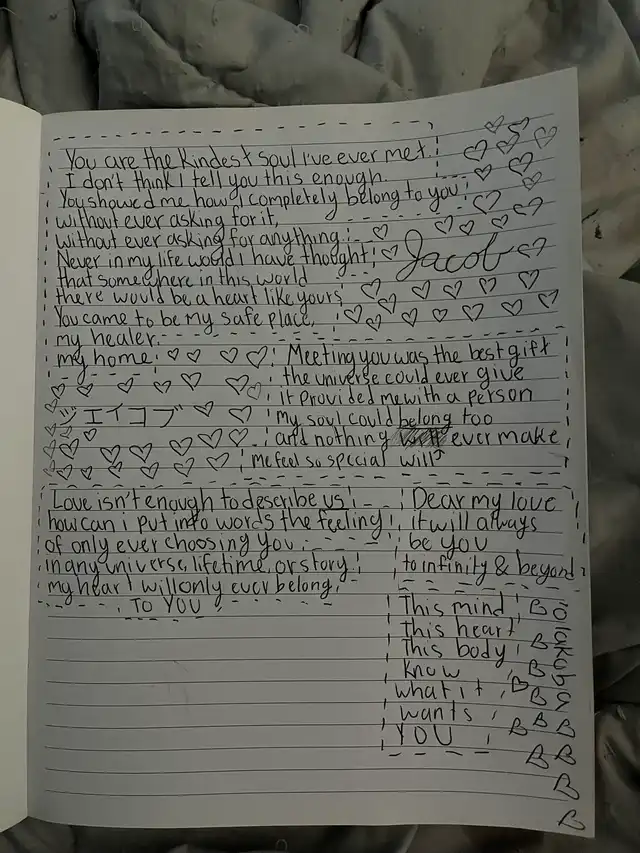 You are the kindest soul I've ever met.
I don't think I tell you this enough.
You showed me how I completely belong to you
without ever asking for it,
without ever asking for anything.
Never in my life would I have thought
that somewhere in this world
there would be a heart like yours
You came to be my safe place,
my healer.
my home.
Jacob
ジェイコブ
Meeting you was the best gift
the universe could ever give
it provided me with a person
my soul could belong too
and nothing ever make
me feel so special will
Love isn't enough to describe us
how can i put into words the feeling
of only ever choosing you
in any universe, lifetime, or story
my heart will only ever belong.
TO YOU
Dear my love
it will always
be you
to infinity & beyond
This mind
This heart
This body
know
what it
wants
YOU